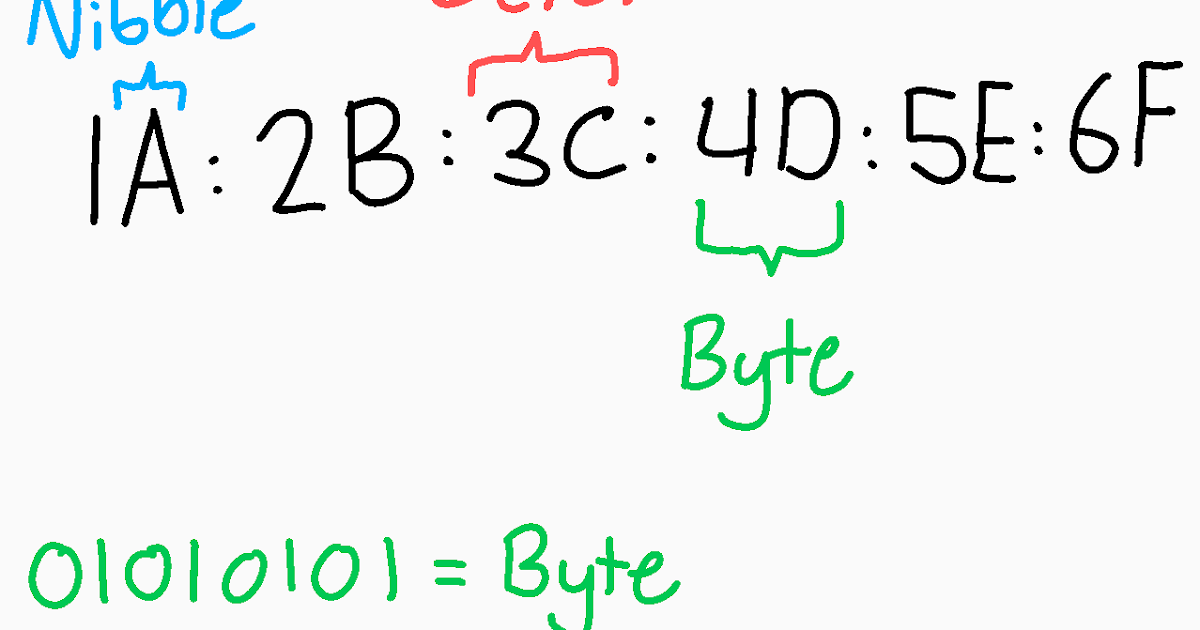 Nibble
1A : 2B : 3C : 4D : 5E : 6F
Byte
01010101 = Byte